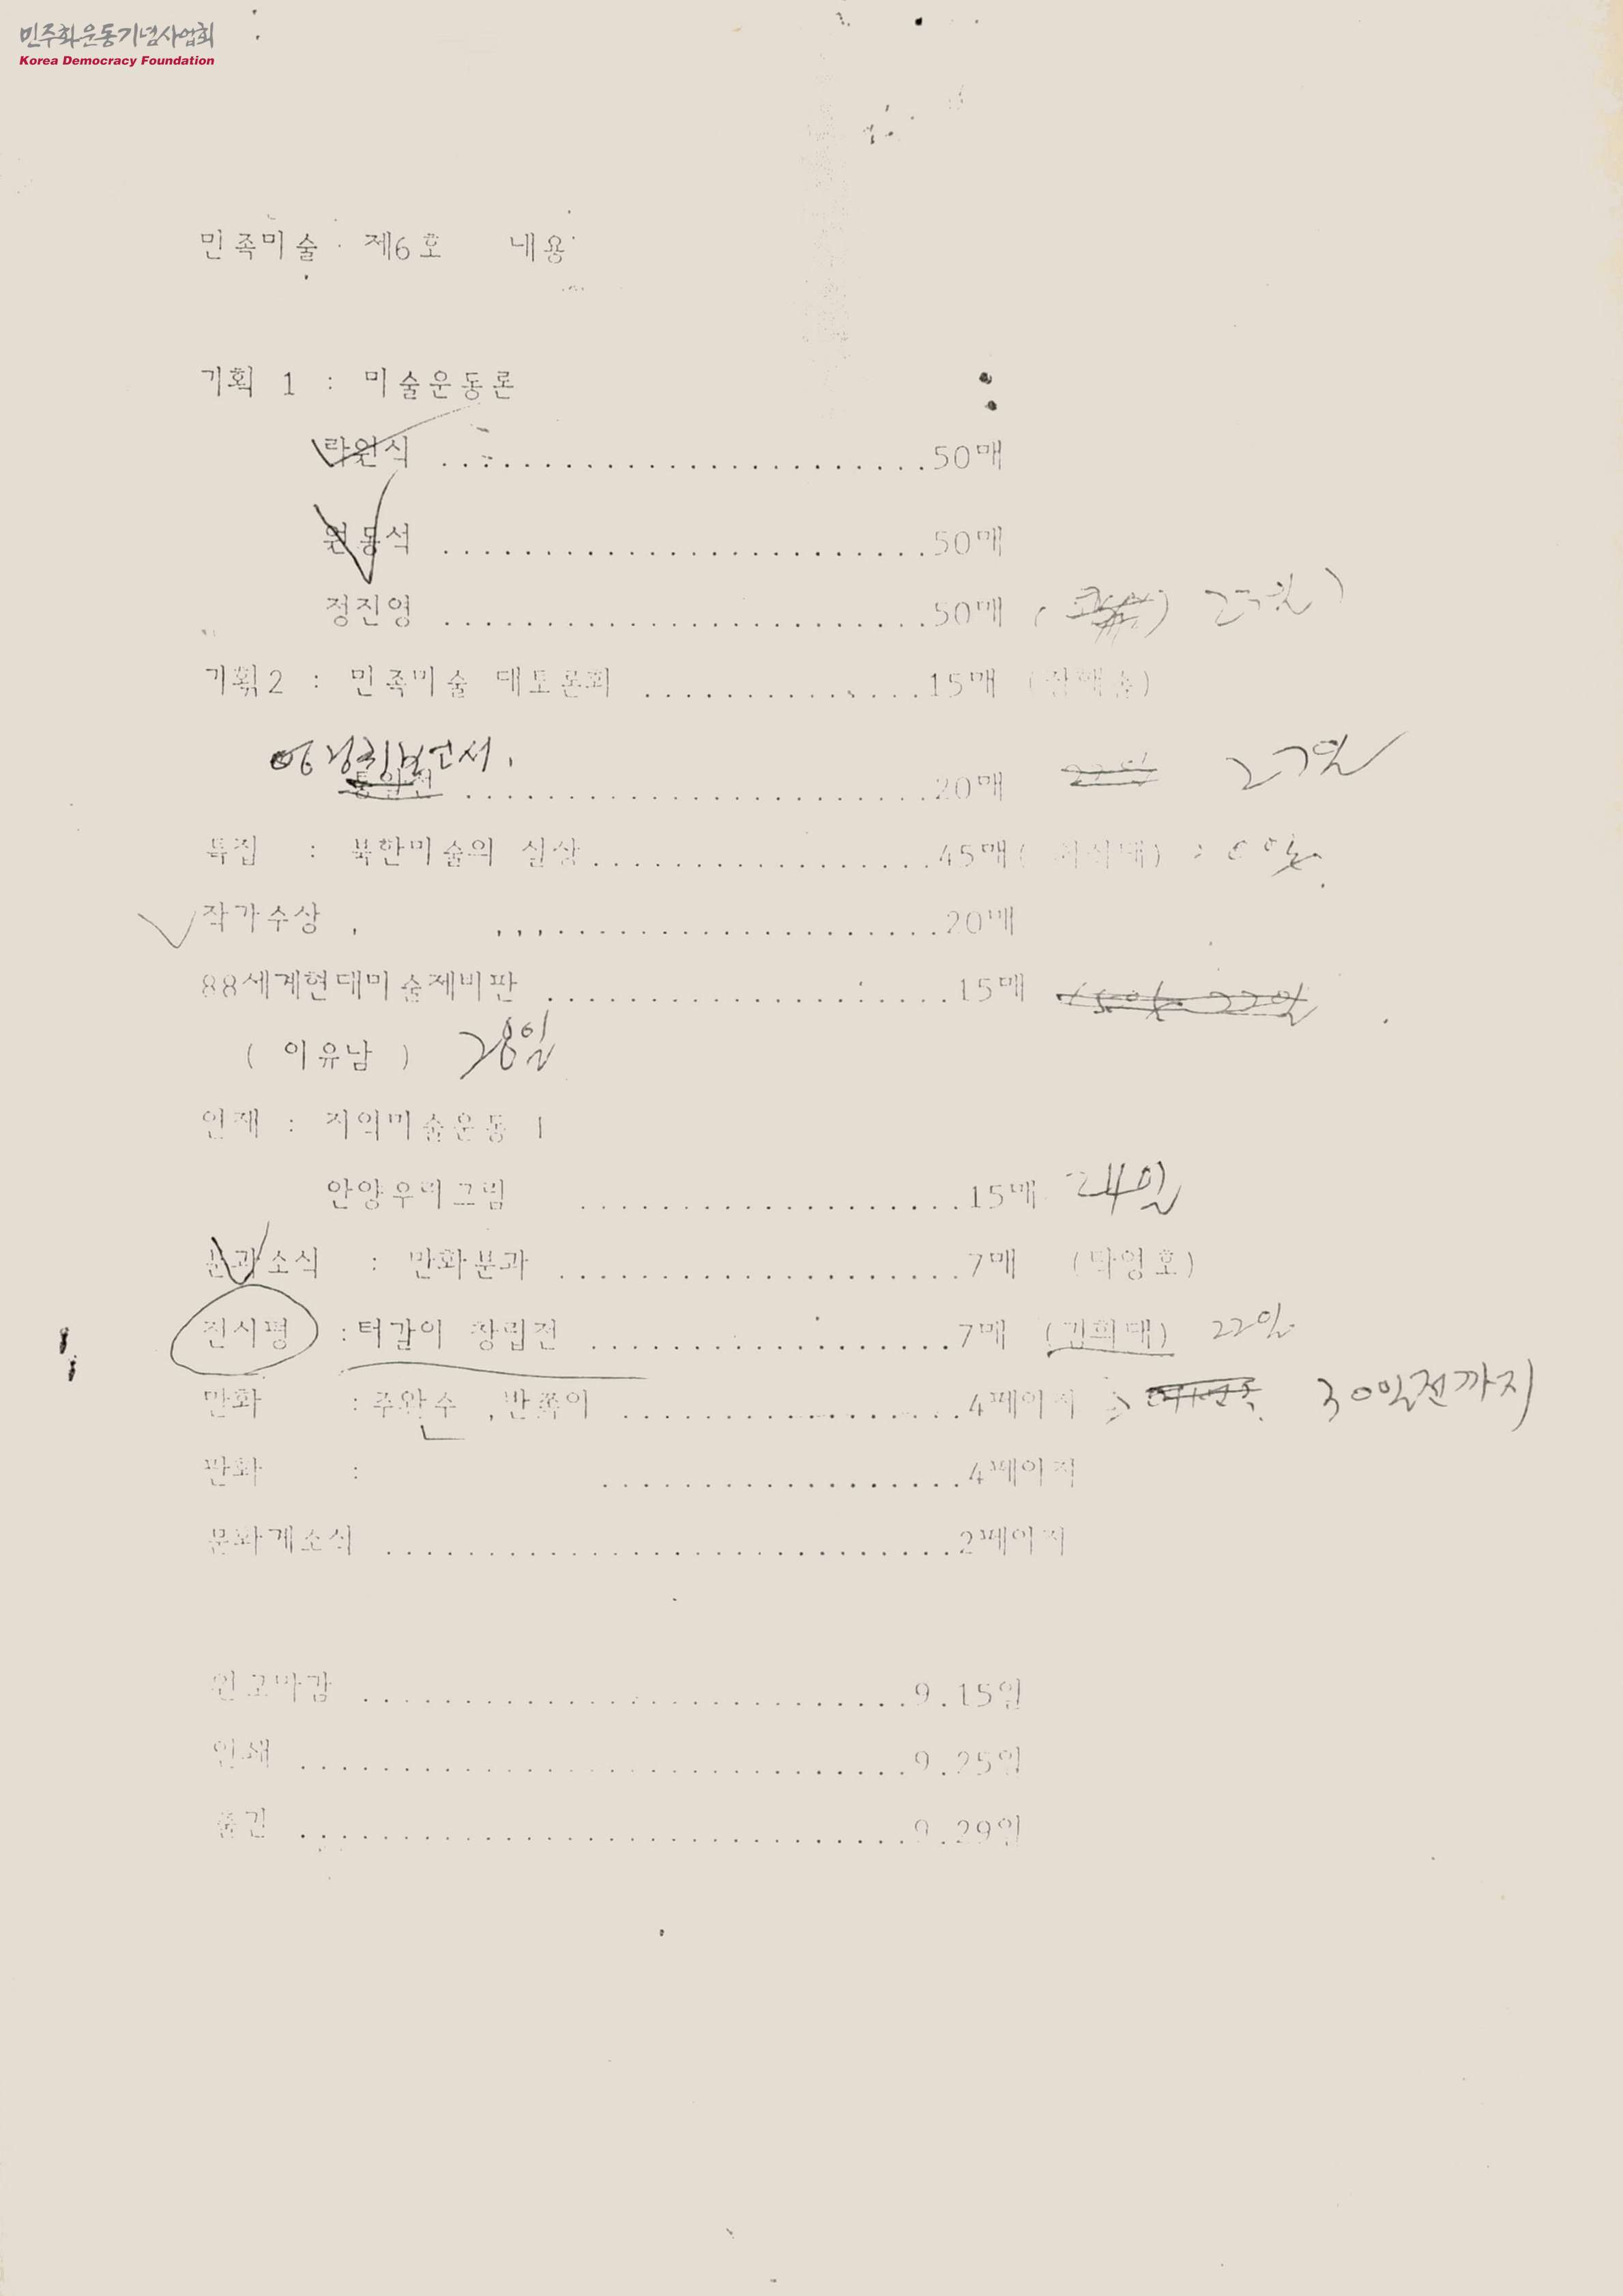 민주화운동기념사업회
Korea Democracy Foundation
민족미술 제6호 내용
기획 1 : 미술운동론
라원식 ..............................50매
원동석 ..............................50매
정진영 ..............................50매 ( ) 27일 )
기획2 : 민족미술 대토론회 .................15매
보고서.
..............................20매 22일 27일
특집 : 북한미술의 실상.....................45매(
작가수상 , ,,,.........................20매
88세계현대미술제비판 .........................15매 22일
( 이유남 ) 28일
연재 : 지역미술운동 1
안양우리그림 .......................15매 24일
분과소식 : 만화분과 ........................7매 (박영호)
전시평 :터갈이 창립전 ......................7매 (김희대) 22일
만화 :주완수 ,반쪽이 .....................4페이지 30일전까지
만화 : ......................4페이지
문화계소식 ..................................2페이지
원고마감 .................................9.15일
인쇄 ....................................9.25일
출간 ....................................9.29일